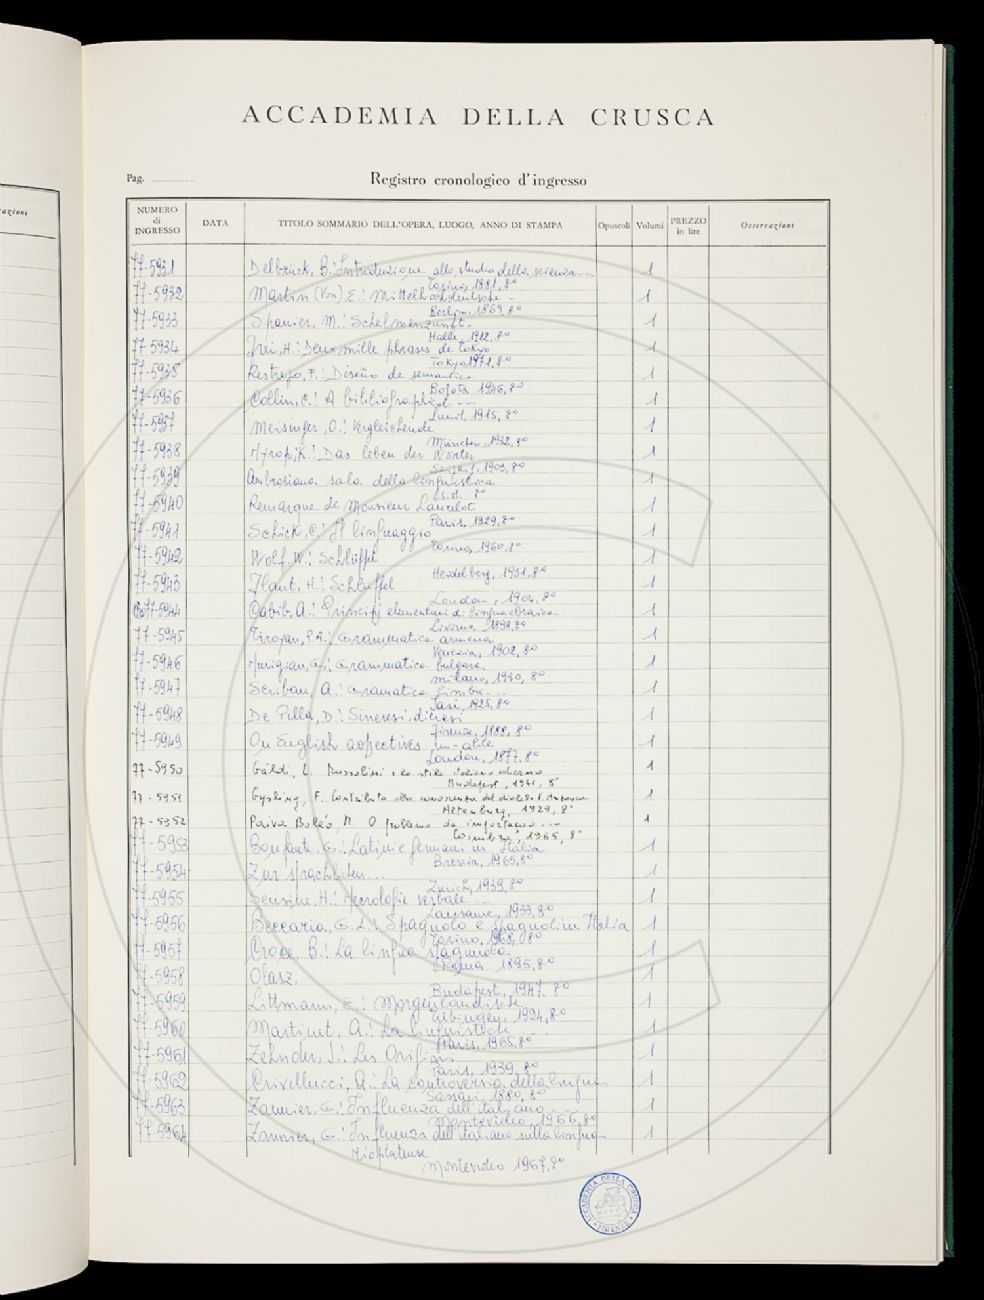 azioni
ACCADEMIA DELLA CRUSCA
Pag.
Registro cronologico d'ingresso
NUMERO di INGRESSO DATA TITOLO SOMMARIO DELL'OPERA, LUOGO, ANNO DI STAMPA Opuscoli Volumi PREZZO in lire Osservazioni
77-5931 Delbrück, B.: Introduzione allo studio della scienza... 1
Torino, 1881, 8°
77-5932 Martin (Von), E.: Mittelhochdeutsche - 1
Berlin, 1869, 8°
77-5933 Spanier, M.: Schelmenzunft. 1
Halle, 1912, 8°
77-5934 Frei, H.: Deux mille phrases de Tokyo 1
Tokyo 1971, 8°
77-5935 Restrepo, F.: Diseño de semantica 1
Bogota 1946, 8°
77-5936 Collin, C.: A bibliographical --- 1
Lund, 1915, 8°
77-5937 Meisinger, O.: Vergleichende 1
München, 1932, 8°
77-5938 Nyrop, K.: Das leben der Wörter 1
1903, 8°
77-5939 Ambrosiana sala della linguistica 1
s.d. 8°
77-5940 Remarque de Monsieur Lancelot 1
Paris, 1929, 8°
77-5941 Schick, C.: Il linguaggio 1
Torino, 1960, 8°
77-5942 Wolf, W.: Schlüssel 1
Heidelberg, 1931, 8°
77-5943 H.: Schlüssel 1
London, 1904, 8°
77-5944 Cabib, A.: Principi elementari di lingua ebraica 1
Livorno 1892, 8°
77-5945 Tiroyan, P.A.: Grammatica armena 1
Venezia, 1902, 8°
77-5946 G.: Grammatica bulgara 1
Milano, 1930, 8°
77-5947 Scriban, A.: Gramatica limbii... 1
Iasi, 1925, 8°
77-5948 De Filla, D.: Sineresi, dieresi 1
Firenze, 1888, 8°
77-5949 On English adjectives in -able 1
London, 1877, 8°
77-5950 Gáldi, L. Mussolini e lo stile italiano odierno 1
Budapest, 1941, 8°
77-5951 Gysling, F. Contributo alla conoscenza del dialetto 1
Altenburg, 1929, 8°
77-5952 Paiva Boléo, M. O problema da importacao... 1
Coimbra, 1965, 8°
77-5953 Bonfante, G.: Latini e germani in Italia 1
Brescia, 1965, 8°
77-5954 Zur sprachlichen... 1
Zurich, 1939, 8°
77-5955 Sensine, H.: Necrologie verbale --- 1
Lausanne, 1933, 8°
77-5956 Beccaria, G.L.: Spagnolo e spagnoli in Italia 1
Torino, 1968, 8°
77-5957 Croce, B.: La lingua spagnola 1
Roma 1895, 8°
77-5958 Olasz. 1
Budapest, 1947, 8°
77-5959 Littmann, E.: Morgenländische 1
Tübingen, 1924, 8°
77-5960 Martinet, A.: La linguistique 1
Paris, 1965, 8°
77-5961 Zehnder, J.: Les Origini 1
Paris, 1939, 8°
77-5962 Crivellucci, A.: La controversia della lingua 1
Sassari, 1880, 8°
77-5963 Zannier, G.: Influenza dell'italiano... 1
Montevideo, 1966, 8°
77-5964 Zannier, G.: Influenza dell'italiano sulla lingua 1
rioplatense
Montevideo 1967, 8°
ACCADEMIA DELLA CRUSCA
FIRENZE